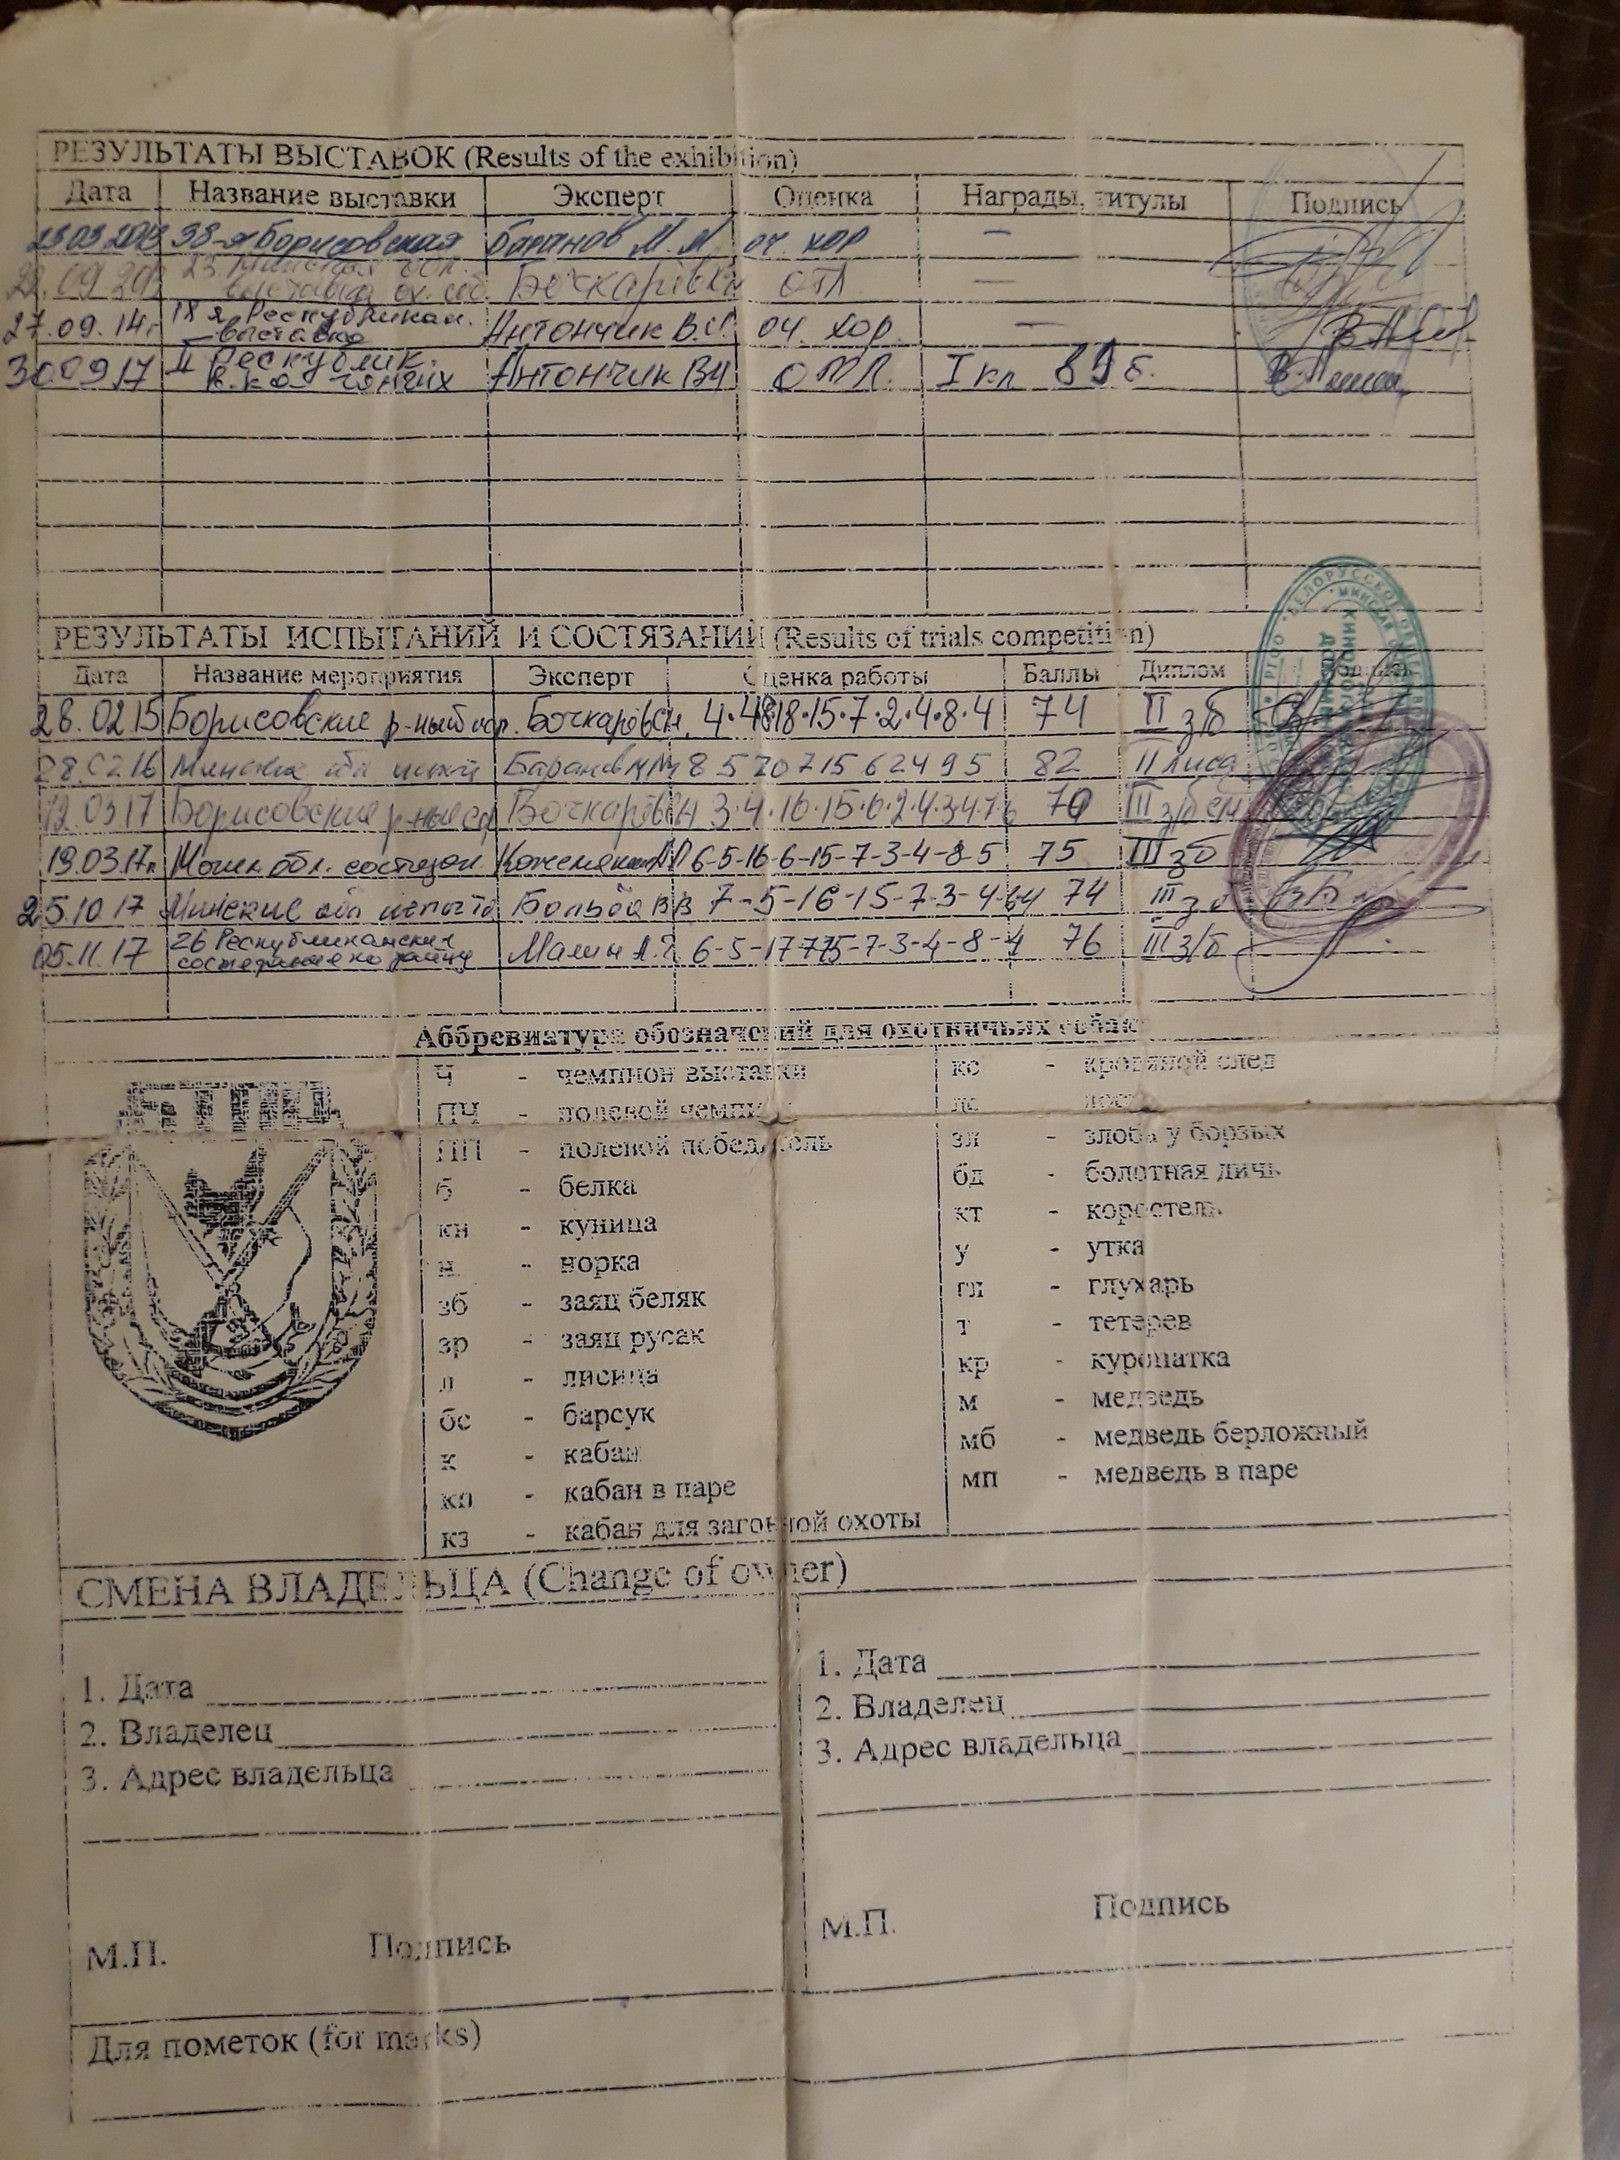 РЕЗУЛЬТАТЫ ВЫСТАВОК (Results of the exhibition)
Дата Название выставки Эксперт Оценка Награды, титулы Подпись
38-я Борисовская Баранов М.М. оч. хор —
выставка ох. соб. Бочкарёв отл —
27.09.14г Республикан. выставка Антончик В.И. оч. хор. —
30.09.17 II Республик. гончих Антончик ВИ отл. I кл 89 б.
РЕЗУЛЬТАТЫ ИСПЫТАНИЙ И СОСТЯЗАНИЙ (Results of trials competition)
Дата Название мероприятия Эксперт Оценка работы Баллы Диплом
28.02 15 Борисовские р-ный Бочкарёв СН. 18·15·7·2·4·8·4 74 II зб
28.02 16 Минские обл Баранов ММ 8 5 20 7 15 6 2 4 9 5 82 II лиса
12.03 17 Борисовские Бочкарёв 3·4·16·15·6·2·4·3·4 70 III зб
19.03.17г обл. состязан 6-5-16-6-15-7-3-4-8-5 75 III зб
25.10 17 Минские обл Бальба ВВ 7-5-16-15-7-3-4 74 III
05.11.17 26 Республиканские Малин А. 6-5-17 -7-3-4-8-4 76 III з/б
Аббревиатура обозначений для охотничьих собак
Ч - чемпион выставки
ПЧ - полевой чемпион
ПП - полевой победитель
б - белка
кн - куница
н - норка
зб - заяц беляк
зр - заяц русак
л - лисица
бс - барсук
к - кабан
кп - кабан в паре
кз - кабан для загонной охоты
кс - кровяной след
лс
зл - злоба у борзых
бд - болотная дичь
кт - коростель
у - утка
гл - глухарь
т - тетерев
кр - куропатка
м - медведь
мб - медведь берложный
мп - медведь в паре
СМЕНА ВЛАДЕЛЬЦА (Change of owner)
1. Дата
2. Владелец
3. Адрес владельца
М.П. Подпись
1. Дата
2. Владелец
3. Адрес владельца
М.П. Подпись
Для пометок (for marks)